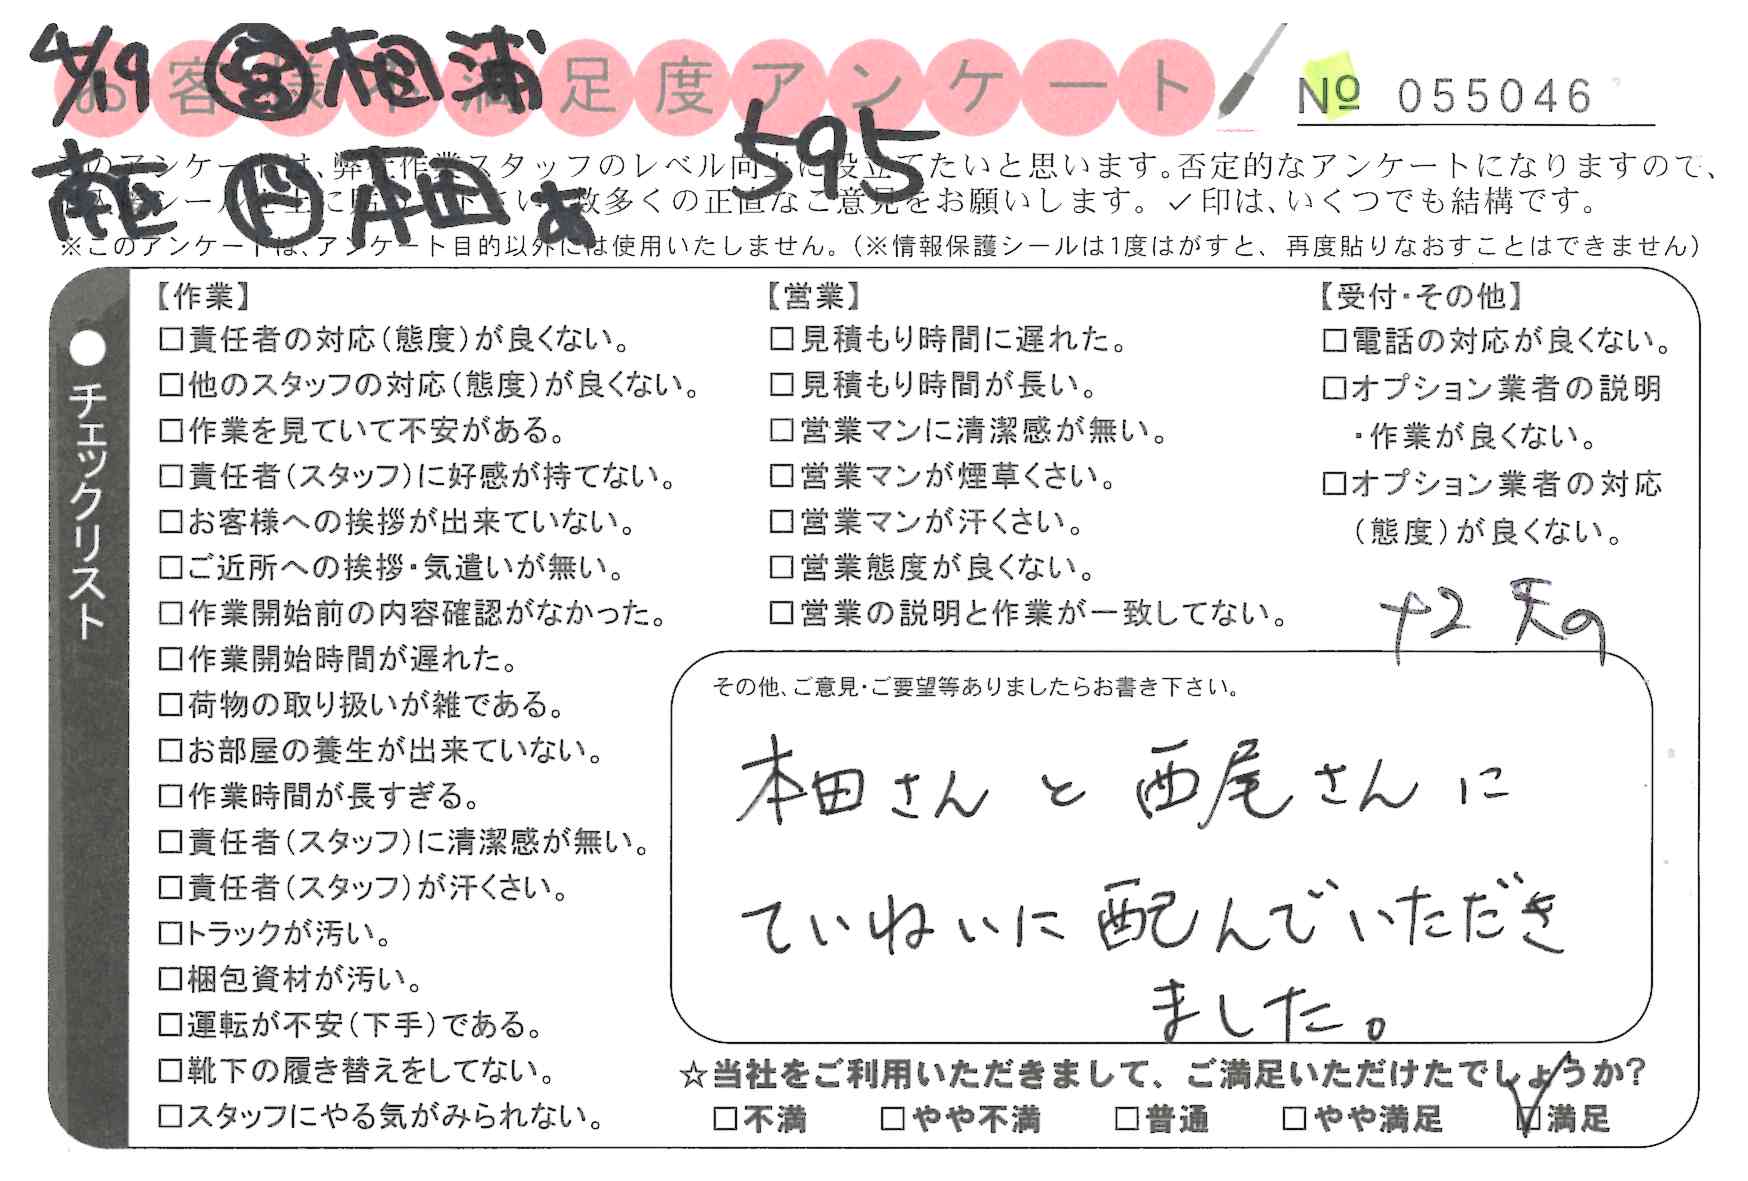 4/19 営 相浦
お客様不満足度アンケート
No 055046
595
本田 あ
このアンケートは、弊社作業スタッフのレベル向上に役立てたいと思います。否定的なアンケートになりますので、
シール 数多くの正直なご意見をお願いします。✓印は、いくつでも結構です。
※このアンケートは、アンケート目的以外には使用いたしません。(※情報保護シールは1度はがすと、再度貼りなおすことはできません)
●チェックリスト
【作業】
□責任者の対応(態度)が良くない。
□他のスタッフの対応(態度)が良くない。
□作業を見ていて不安がある。
□責任者(スタッフ)に好感が持てない。
□お客様への挨拶が出来ていない。
□ご近所への挨拶・気遣いが無い。
□作業開始前の内容確認がなかった。
□作業開始時間が遅れた。
□荷物の取り扱いが雑である。
□お部屋の養生が出来ていない。
□作業時間が長すぎる。
□責任者(スタッフ)に清潔感が無い。
□責任者(スタッフ)が汗くさい。
□トラックが汚い。
□梱包資材が汚い。
□運転が不安(下手)である。
□靴下の履き替えをしてない。
□スタッフにやる気がみられない。
【営業】
□見積もり時間に遅れた。
□見積もり時間が長い。
□営業マンに清潔感が無い。
□営業マンが煙草くさい。
□営業マンが汗くさい。
□営業態度が良くない。
□営業の説明と作業が一致してない。
【受付・その他】
□電話の対応が良くない。
□オプション業者の説明
・作業が良くない。
□オプション業者の対応
(態度)が良くない。
+2
その他、ご意見・ご要望等ありましたらお書き下さい。
本田さんと西尾さんに
ていねいに配んでいただき
ました。
☆当社をご利用いただきまして、ご満足いただけたでしょうか?
□不満 □やや不満 □普通 □やや満足 ☑満足